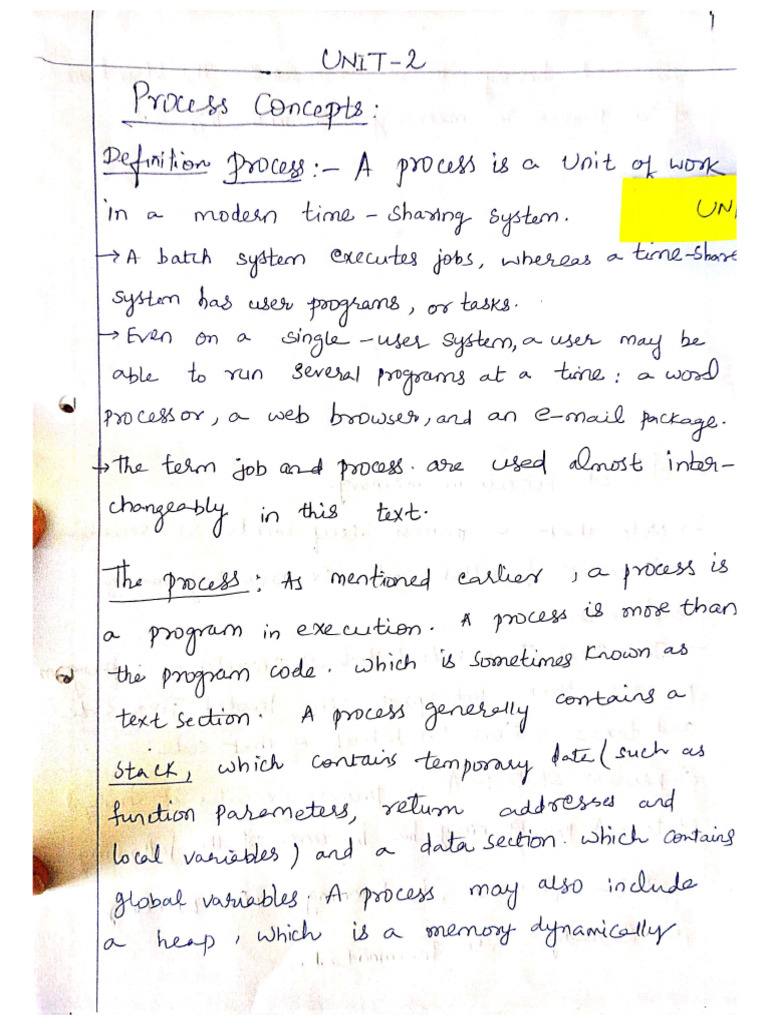 1
UNIT-2
Process Concepts:
Definition Process:- A process is a unit of work
in a modern time-sharing system.
UNI
→ A batch system executes jobs, whereas a time-share
system has user programs, or tasks.
→ Even on a single-user system, a user may be
able to run several programs at a time: a word
processor, a web browser, and an e-mail package.
→ The term job and process. are used almost inter-
changeably in this text.
The process: As mentioned earlier, a process is
a program in execution. A process is more than
the program code. which is sometimes known as
text section. A process generally contains a
stack, which contains temporary date (such as
function parameters, return addresses and
local variables) and a data section. which contains
global variables. A process may also include
a heap, which is a memory dynamically